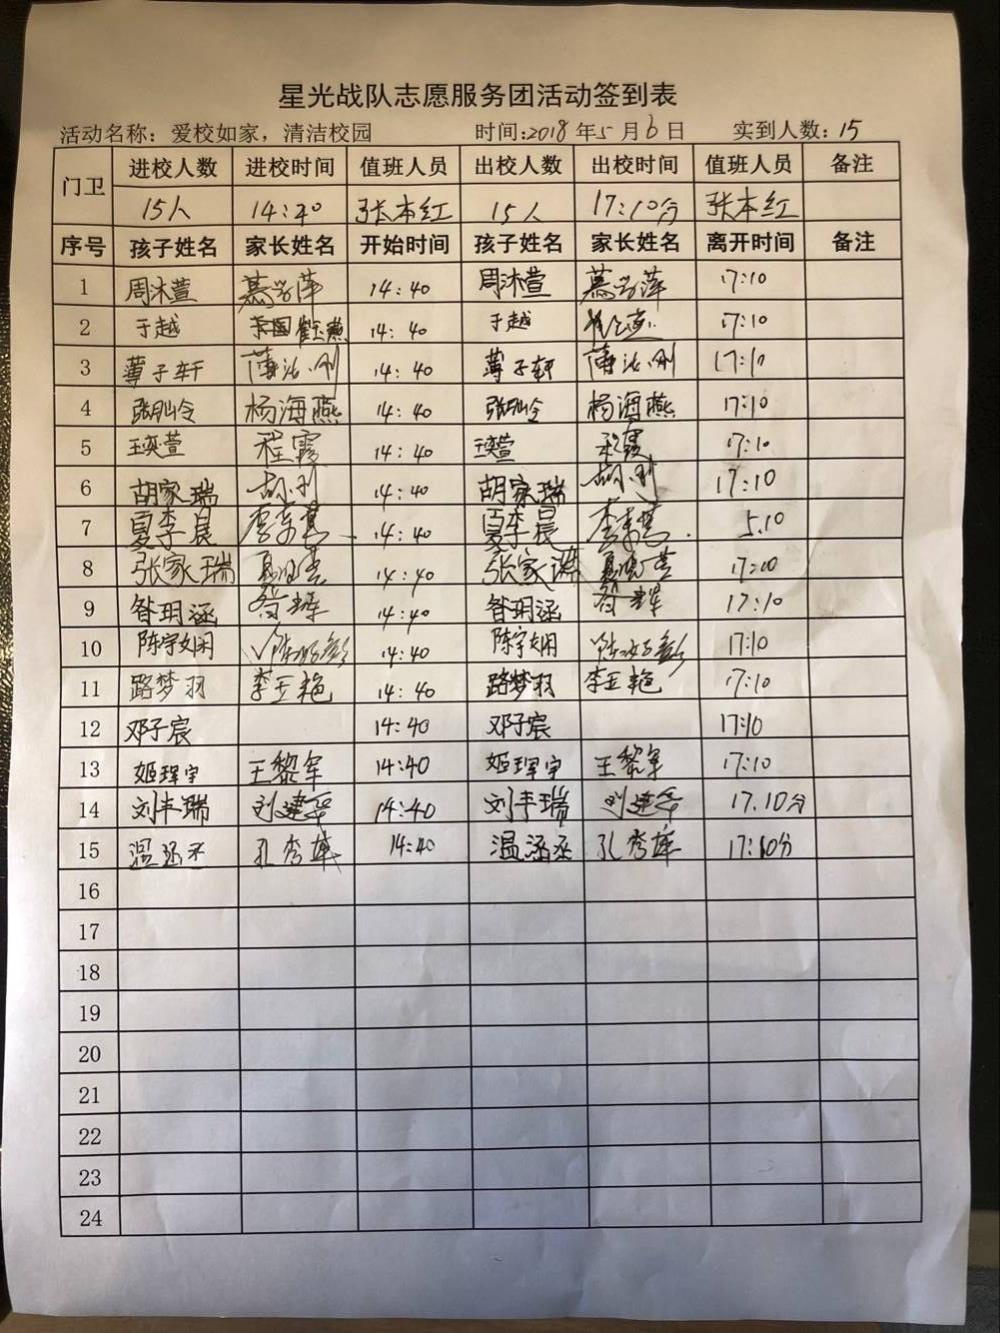 星光战队志愿服务团活动签到表
活动名称：爱校如家，清洁校园 时间：2018年5月6日 实到人数：15
门卫 进校人数 进校时间 值班人员 出校人数 出校时间 值班人员 备注
15人 14:40 张本红 15人 17:10分 张本红
序号 孩子姓名 家长姓名 开始时间 孩子姓名 家长姓名 离开时间 备注
1 周沐萱 14:40 周沐萱 17:10
2 于越 14:40 于越 17:10
3 薄子轩 14:40 薄子轩 17:10
4 杨海燕 14:40 杨海燕 17:10
5 王奕萱 程霞 14:40 王奕萱 程霞 17:10
6 胡家瑞 胡刚 14:40 胡家瑞 胡刚 17:10
7 夏季晨 14:40 夏季晨 5.10
8 张家瑞 14:40 17:10
9 昝玥涵 昝辉 14:40 昝玥涵 昝辉 17:10
10 陈宇娴 14:40 陈宇娴 17:10
11 路梦羽 李玉艳 14:40 路梦羽 李玉艳 17:10
12 邓子宸 14:40 邓子宸 17:10
13 姬珲宇 王黎军 14:40 姬珲宇 王黎军 17:10
14 刘丰瑞 刘建军 14:40 刘丰瑞 刘建军 17.10分
15 温涵丞 孔秀雄 14:40 温涵丞 孔秀雄 17:10分
16
17
18
19
20
21
22
23
24